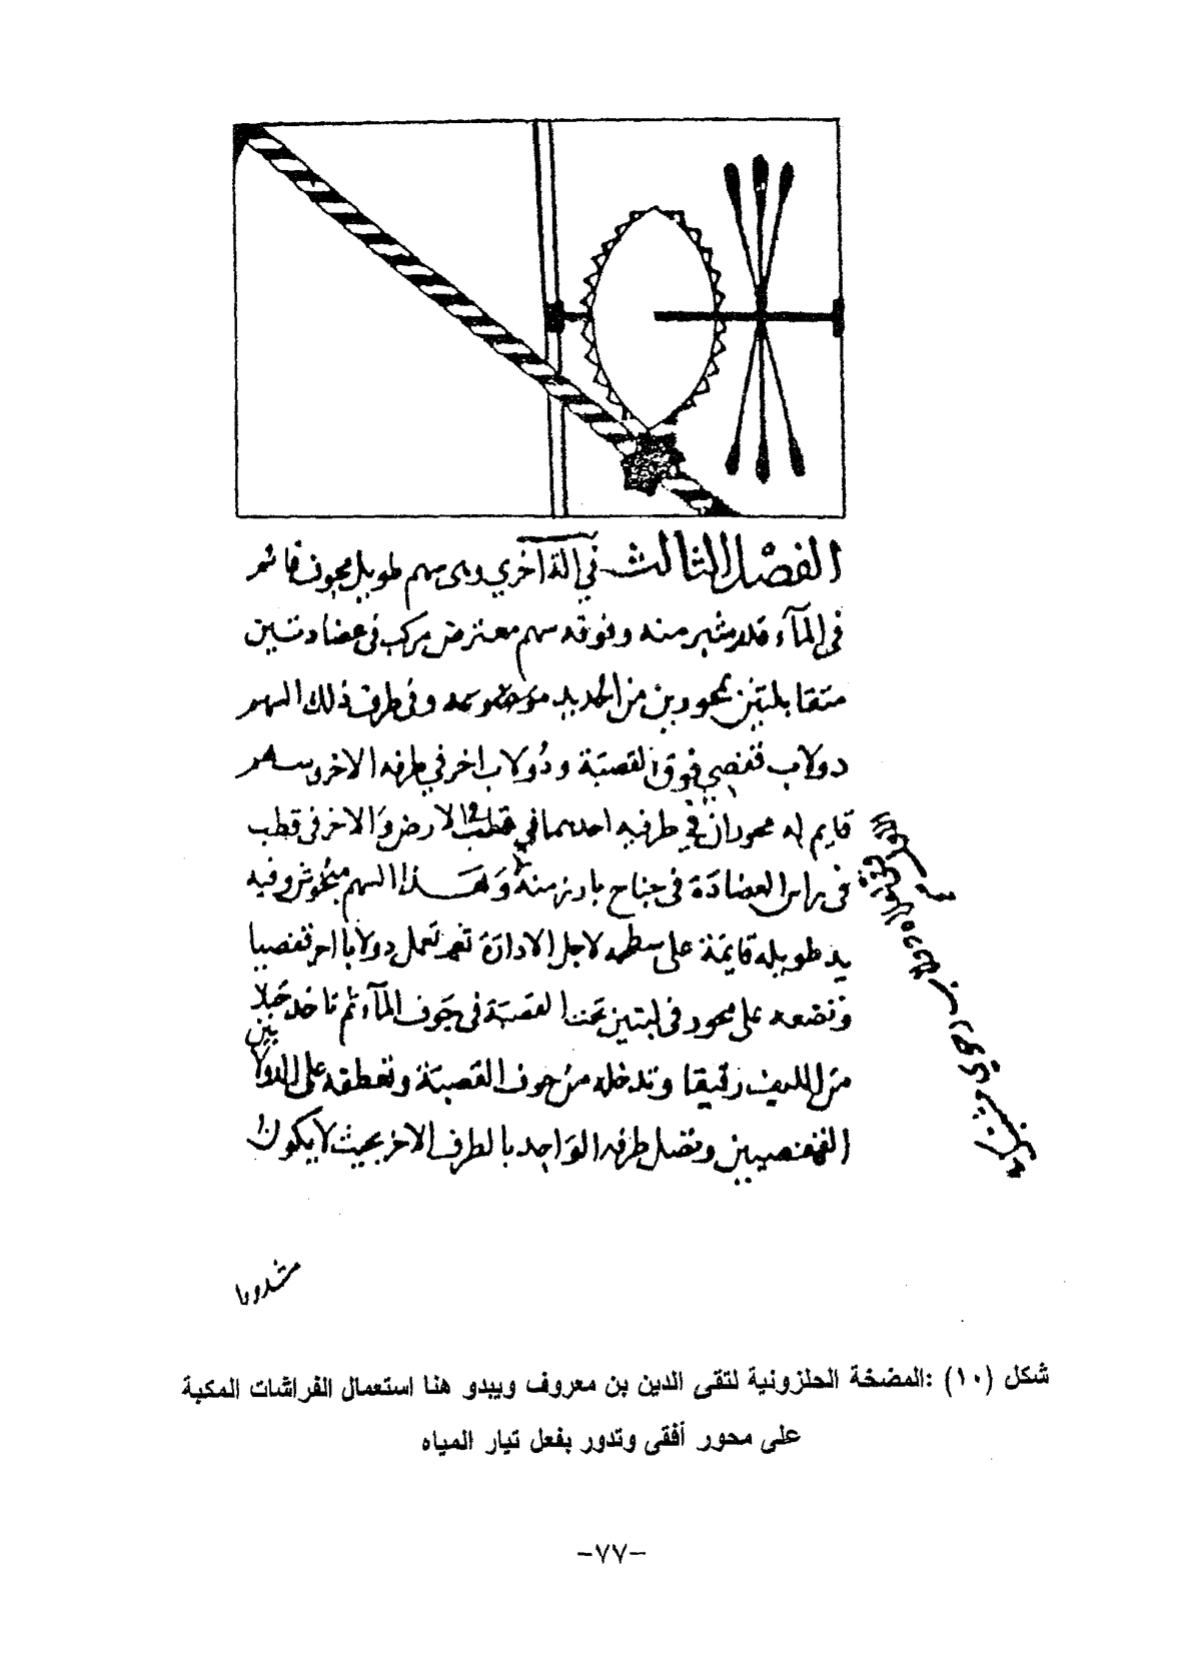 الفصل الثالث في الة اخري وهى سهم طويل مجوف قائم
في المآء قدر شبر منه وفوقه سهم معترض مركب في عضادتين
متقابلتين بمحورين من الحديد وفي طرف ذلك السهم
دولاب قفصي فوق القصبة ودولاب اخر في طرفه الاخر سهم
قايم له محوران في طرفيه احدهما في قطب في الارض والاخر في قطب
في راس العضادة في جناح بارز منه ولهذا السهم وفيه
يد طويله قايمة على سطحه لاجل الادارة ثم تعمل دولابا اخر قفصيا
وتضعه على محور في لبتين تحت القصبة في جوف المآء ثم تاخد حبلا
من الليف رقيقا وتدخله من جوف القصبة وتعطفه على الدولابين
القفصيين وتصل طرفه الواحد بالطرف الاخر بحيث لا يكون
مشدودا
شكل (١٠) :المضخة الحلزونية لتقى الدين بن معروف ويبدو هنا استعمال الفراشات المكبة
على محور أفقى وتدور بفعل تيار المياه
-٧٧-